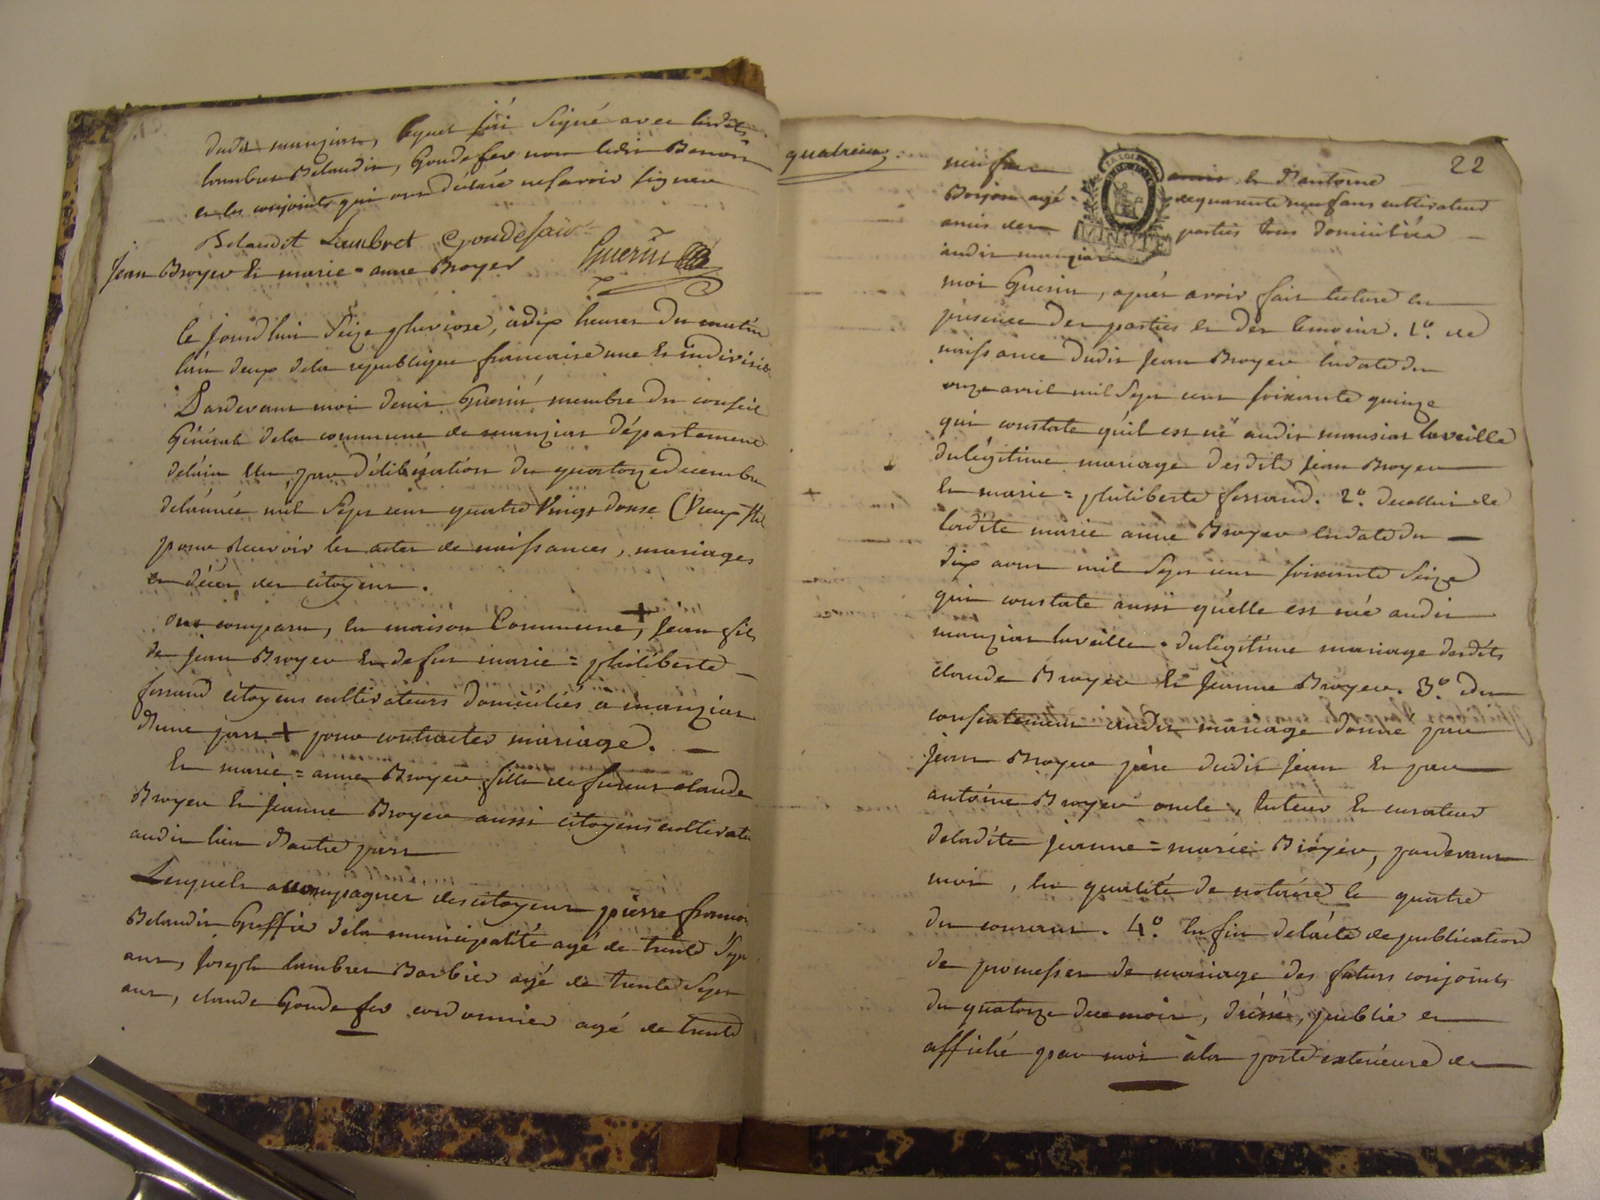 dudit manziat, lequel j'ai signé avec lesdits
lambret Belaudit, Gondefer non ledit Benoit
et les conjoints qui ont déclaré ne savoir signer
Belaudit Lambret Gondefair
Guerin
Jean Broyer Et marie = anne Broyer
le jourdhui Seize pluviose, à dix heures du matin
l'an deux dela république francaise une Et indivisible
Pardevant moi denis Guerin membre du conseil
Général dela commune de manziat département
delain élu par délibération du quatorze decembre
delannée mil Sept cent quatre Vingt douze (Vieux stil
pour Recevoir les actes de naissances, mariages
et décès des citoyens.
ont comparu, en maison Commune, + Jean fils
de jean Broyer Et defunt marie = philiberte
ferrand citoyens cultivateurs domiciliés a manziat
d'une part + pour contracter mariage.
Et marie = anne Broyer fille de feu claude
Broyer Et jeanne Broyer aussi citoyens cultivate
audit lieu d'autre part
Lesquels accompagnés des citoyens pierre francois
Belaudit Greffier dela municipalité agé de trente Sept
ans, Joseph lambret Barbier agé de trente Sept
ans, claude Gondefer cordonnier agé de trente
22
quatrieme
neuf ans
amis Et d'antoine
Borjon agé
de quarante neuf ans cultivateur
amis des
parties tous domiciliés
audit manziat
MINUTE
moi Guerin, après avoir fait lecture en
présence des parties et des temoins. 1.º de
naissance dudit Jean Broyer en date du
onze avril mil Sept cent soixante quinze
qui constate qu'il est né audit mansiat la veille
du légitime mariage desdits jean Broyer
Et marie = philiberte ferrand. 2.º de celui de
ladite marie anne Broyer en date du
dix aout mil Sept cent soixante Seize
qui constate aussi qu'elle est née audit
manziat la veille. du légitime mariage desdits
claude Broyer Et Jeanne Broyer. 3.º du
consentement audit mariage donné par
jean Broyer père dudit jean Et par
antoine Broyer oncle, tuteur Et curateur
deladite jeanne = marie Broyer, pardevant
moi, en qualité de notaire le quatre
du courant. 4.º Enfin delacte de publication
de promesses de mariage des futurs conjoints
du quatorze duemoir, dréssé, publié et
affiché par moi àla porte exterieure de